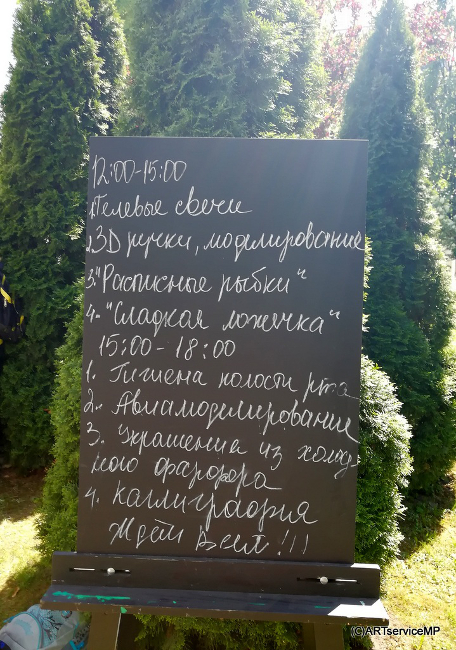 12:00-15:00
1. Гелевые свечи
2. 3D ручки, моделирование
3. "Расписные рыбки"
4. "Сладкая ложечка"
15:00-18:00
1. Гигиена полости рта
2. Авиамоделирование
3. Украшения из холод-
ного фарфора
4. Каллиграфия
Ждём Всех!!!
(C)ARTserviceMP